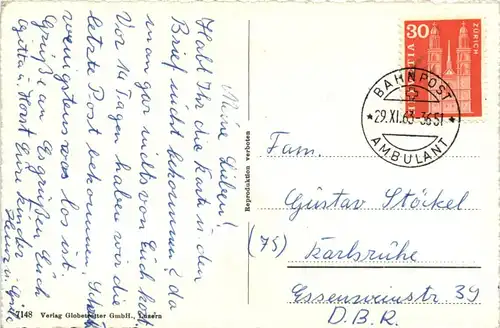 Meine Lieben!
Habt Ihr die Karte u. den
Brief nicht bekommen, da
man gar nichts von Euch hört
Vor 14 Tagen haben wir die
letzte Post bekommen. Schreibt
wenigstens was los ist.
Es grüßen Euch
Grüße an
Eure Kinder
Horst
HELVETIA
30
ZÜRICH
BAHNPOST
29.XI.63-3651
AMBULANT
Reproduktion verboten
Fam.
Gustav Stöckel
(75) Karlsruhe
Essenweinstr 39
D.B.R.
7148 Verlag Globetrotter GmbH., Luzern